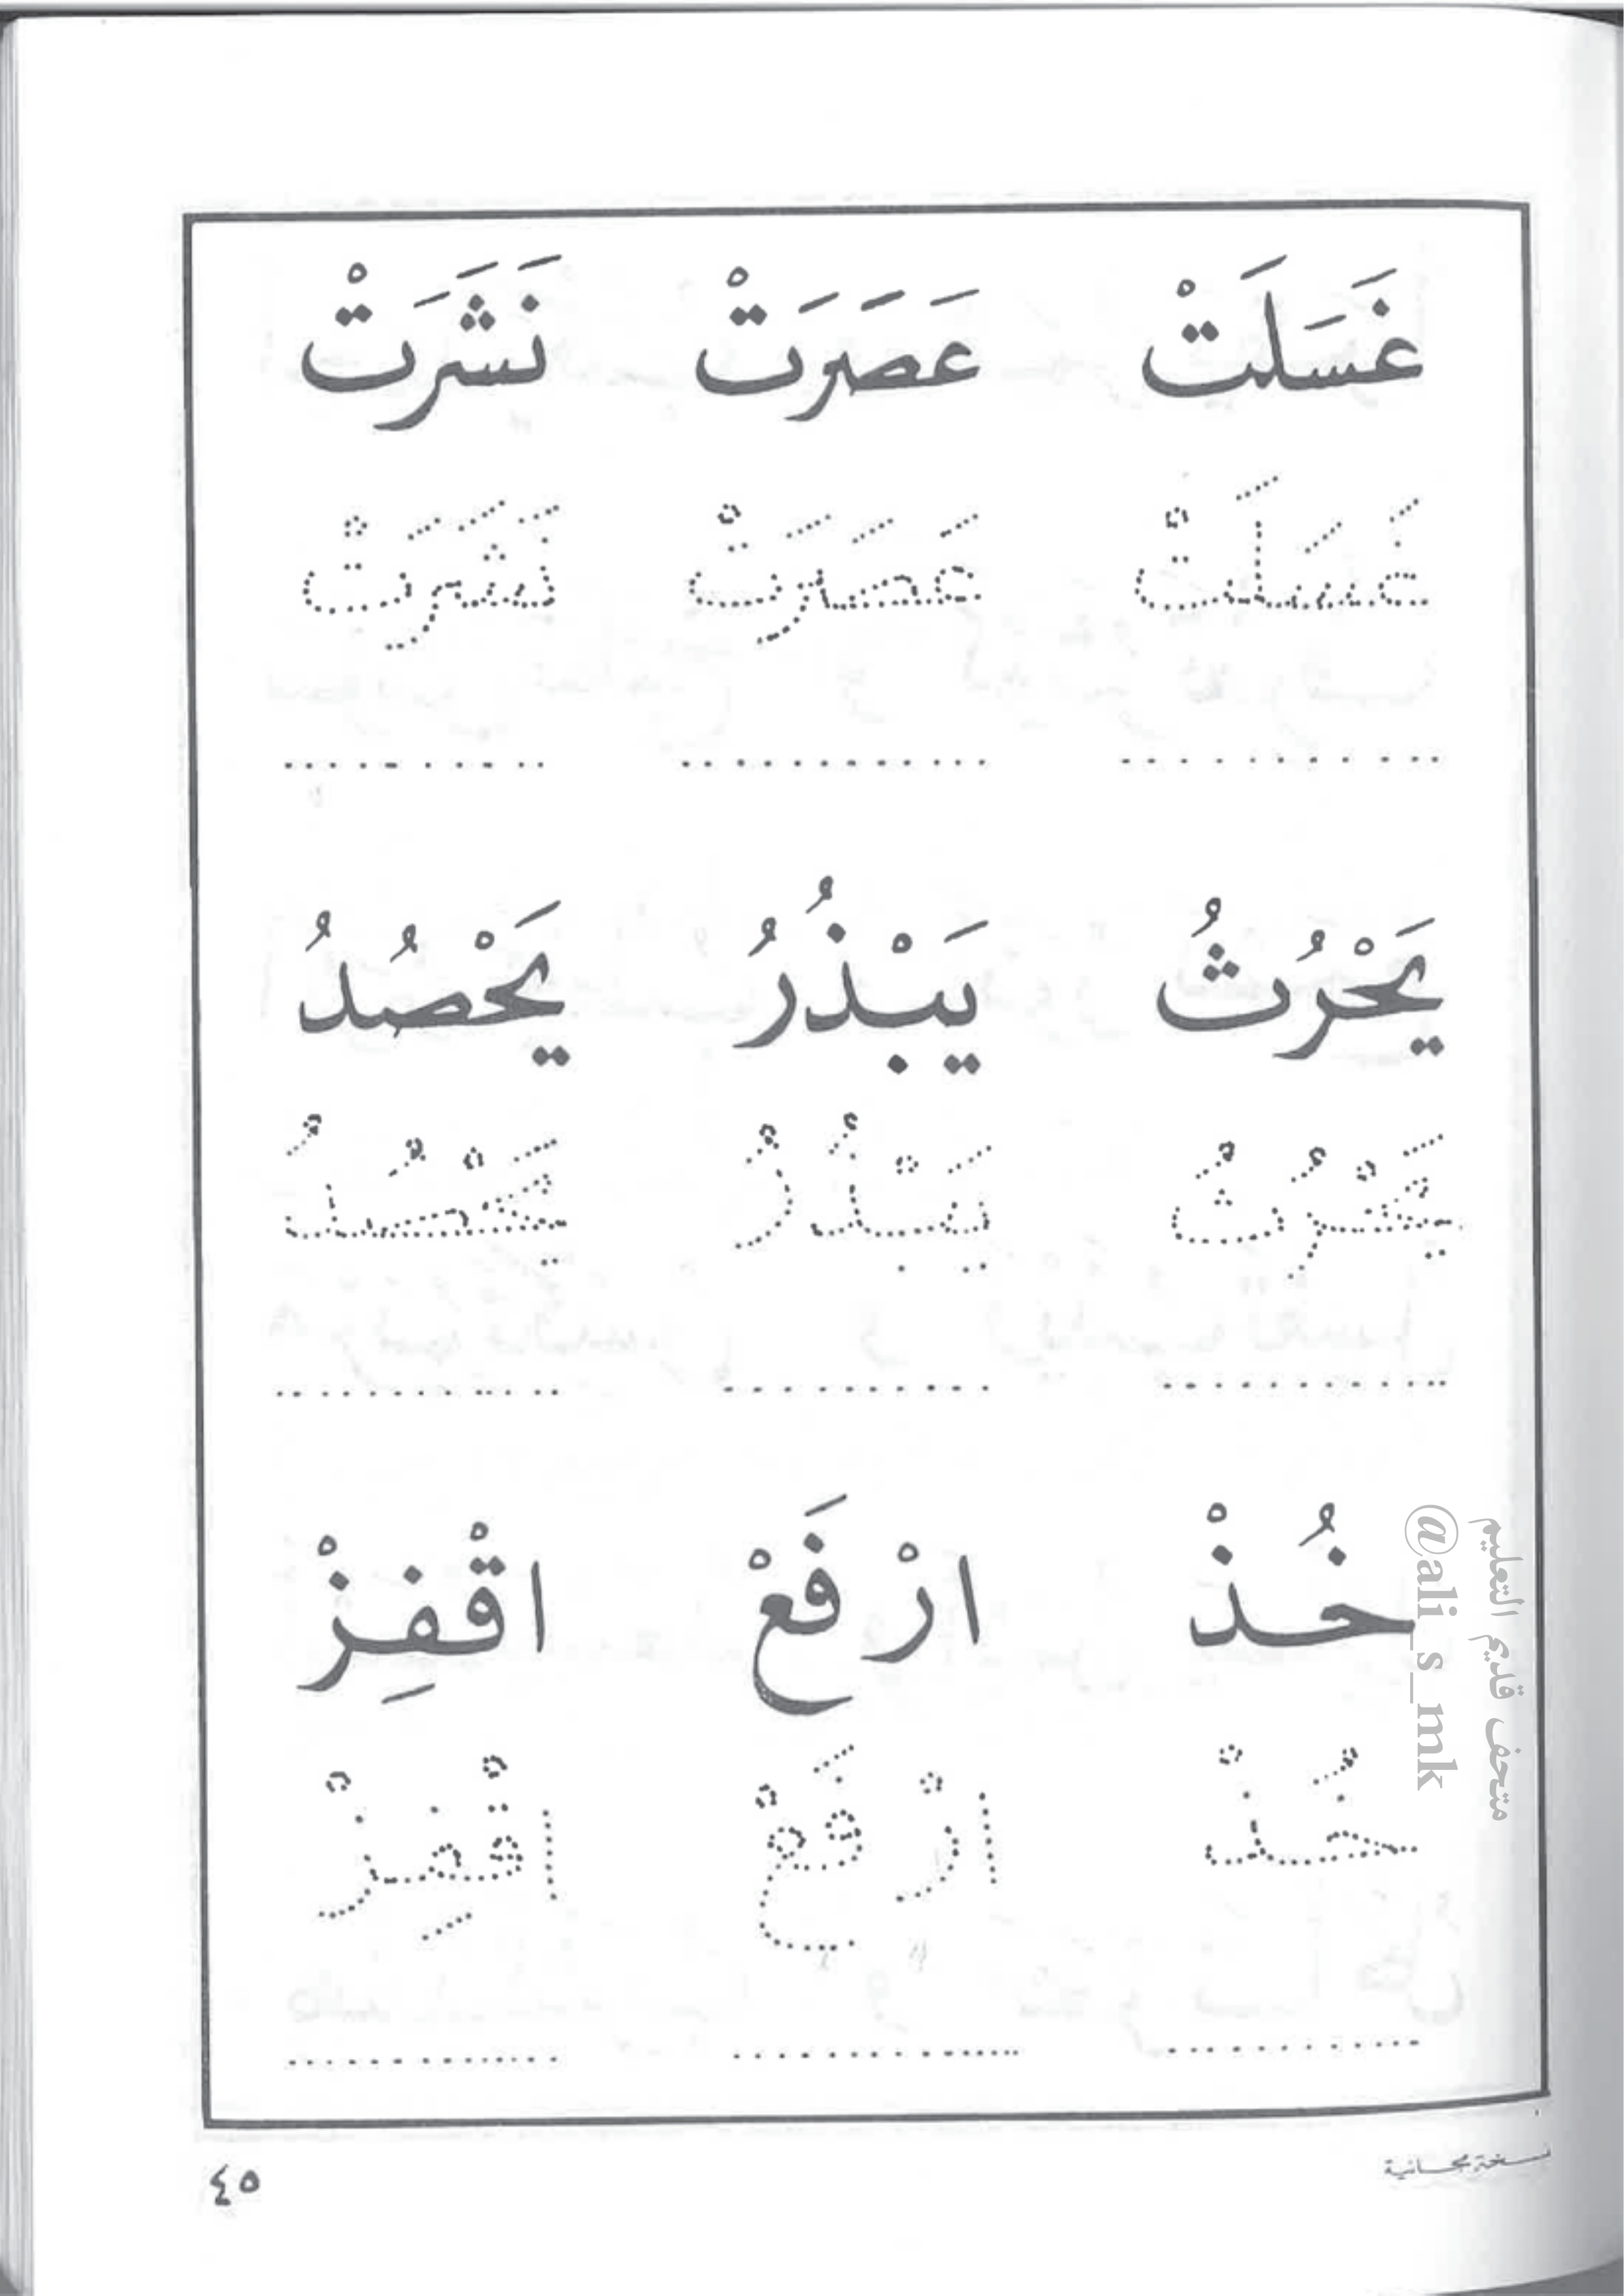 غَسَلَتْ عَصَرَتْ نَشَرَتْ
غَسَلَتْ عَصَرَتْ نَشَرَتْ
يَحْرُثُ يَبْذُرُ يَحْصُدُ
يَحْرُثُ يَبْذُرُ يَحْصُدُ
خُذْ ارْفَعْ اقْفِزْ
خُذْ ارْفَعْ اقْفِزْ
متحف قديم التعليم
@ali_s_mk
نسخة مجانية
٤٥